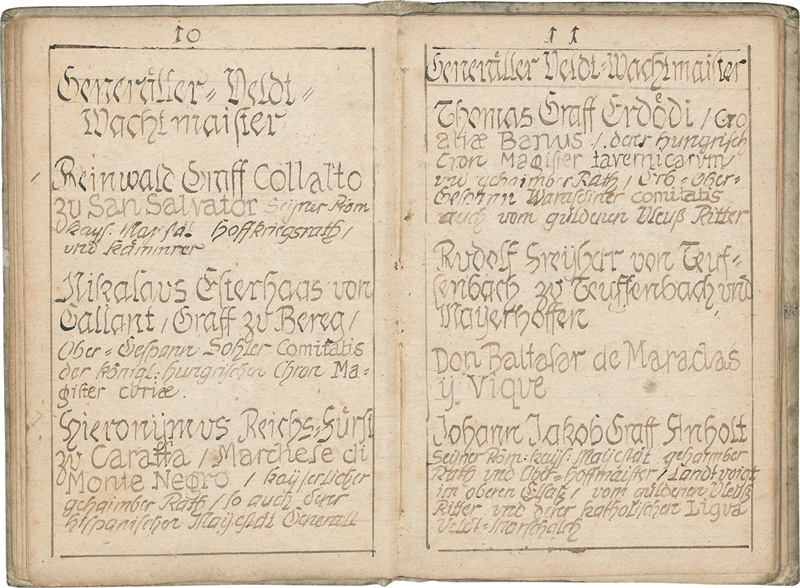 10
Generäller- Veldt-
Wachtmaister
Reinwald Graff Collalto
zu San Salvator Seyner Röm
kays: Marsal Hoffkriegsrath /
und Kämmrer
Nikalaus Esterhaas von
Gallant / Graff zu Bereg /
Ober-Gespann Sohler Comitatis
der königl: hungrischen Chron Ma-
gister curiæ.
Hieronijmus Reichs-Fürst
zu Caraffa / Marchese di
Monte Negro / kayserlicher
gehaimber Rath / so auch dero
hispanischen Mayestät Generall
11
Generäller Veldt-Wachtmaister
Thomas Graff Erdödi / Cro
atiæ Banus / derer hungrisch
Cron Magister tavernicarum
und gehaimber Rath / Erb-Ober-
Gespann Warasdiner comitatis
auch vom güldenen Vleuß Ritter
Rudolf Freyherr von Teuf-
fenbach zu Teuffenbach und
Mayerhoffen
Don Baltasar de Maradas
ÿ Vique
Johann Jakob Graff Anholt
Seyner Röm: kays: Mayestät gehaimber
Rath und Ober-Hoffmaister / Landtvoigt
im oberen Elsaß / vom güldenen Vleuß
Ritter und derer katholischen Ligua
Veldt-Marschalch